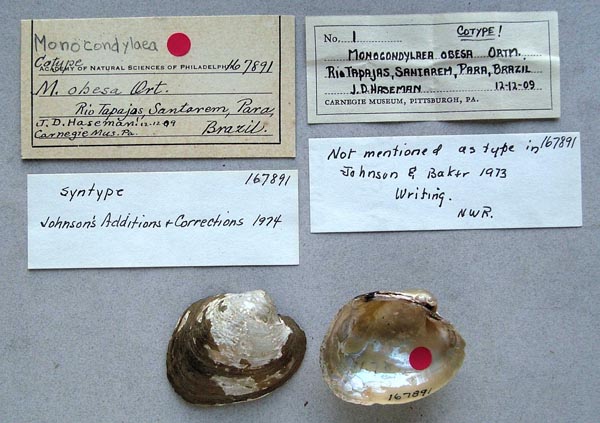 Monocondylaea
Cotype
ACADEMY OF NATURAL SCIENCES OF PHILADELPHIA 167891
M. obesa Ort.
Rio Tapajos, Santarem, Para,
J. D. Haseman! 12-12-09
Brazil.
Carnegie Mus. Pa.
No. 1 COTYPE!
MONOCONDYLAEA OBESA ORTM.
RIO TAPAJAS, SANTAREM, PARA, BRAZIL
J. D. HASEMAN 12-12-09
CARNEGIE MUSEUM, PITTSBURGH, PA.
167891
syntype
Johnson's Additions & Corrections 1974
Not mentioned as type in 167891
Johnson & Baker 1973
Writing.
NWR.
167891